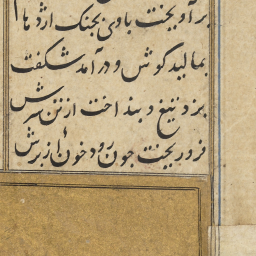 برآویخت با وی بجنگ اژدها
بمالید گوش و درآمد شکفت
بزد تیغ و بنداخت از تن سرش
فرو ریخت چون رود خون از برش